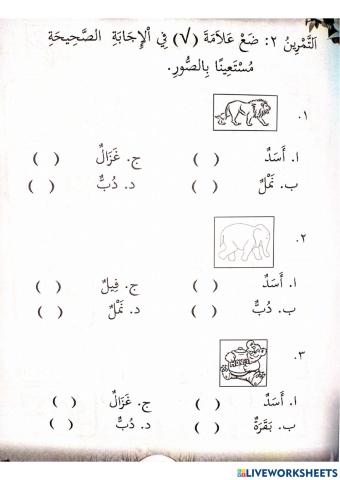 اَلتَّمْرِينُ ٢: ضَعْ عَلاَمَةَ (√) فِي الْإِجَابَةِ الصَّحِيحَةِ
مُسْتَعِينًا بِالصُّورِ.
١.
ا. أَسَدٌ ( ) ج. غَزَالٌ ( )
ب. نَمْلٌ ( ) د. دُبٌّ ( )
٢.
ا. أَسَدٌ ( ) ج. فِيلٌ ( )
ب. دُبٌّ ( ) د. نَمْلٌ ( )
٣.
ا. أَسَدٌ ( ) ج. غَزَالٌ ( )
ب. بَقَرَةٌ ( ) د. دُبٌّ ( )
LIVEWORKSHEETS